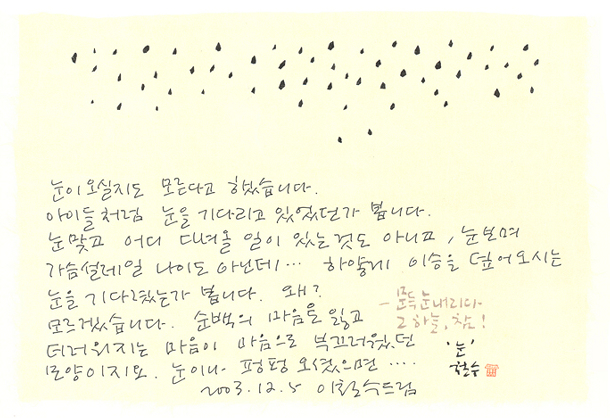 눈이 오실지도 모른다고 했습니다.
아이들처럼 눈을 기다리고 있었던가 봅니다.
눈 맞고 어디 다녀올 일이 있는 것도 아니고, 눈 보며
가슴 설레일 나이도 아닌데… 하얗게 이승을 덮어오시는
눈을 기다렸는가 봅니다. 왜?
모르겠습니다. 순백의 마음을 잃고
더러워지는 마음이 마음으로 부끄러웠던
모양이지요. 눈이나 펑펑 오셨으면 ….
2003.12.5 이철수드림
- 문득 눈내리다
그 하늘, 참!
'눈'
철수